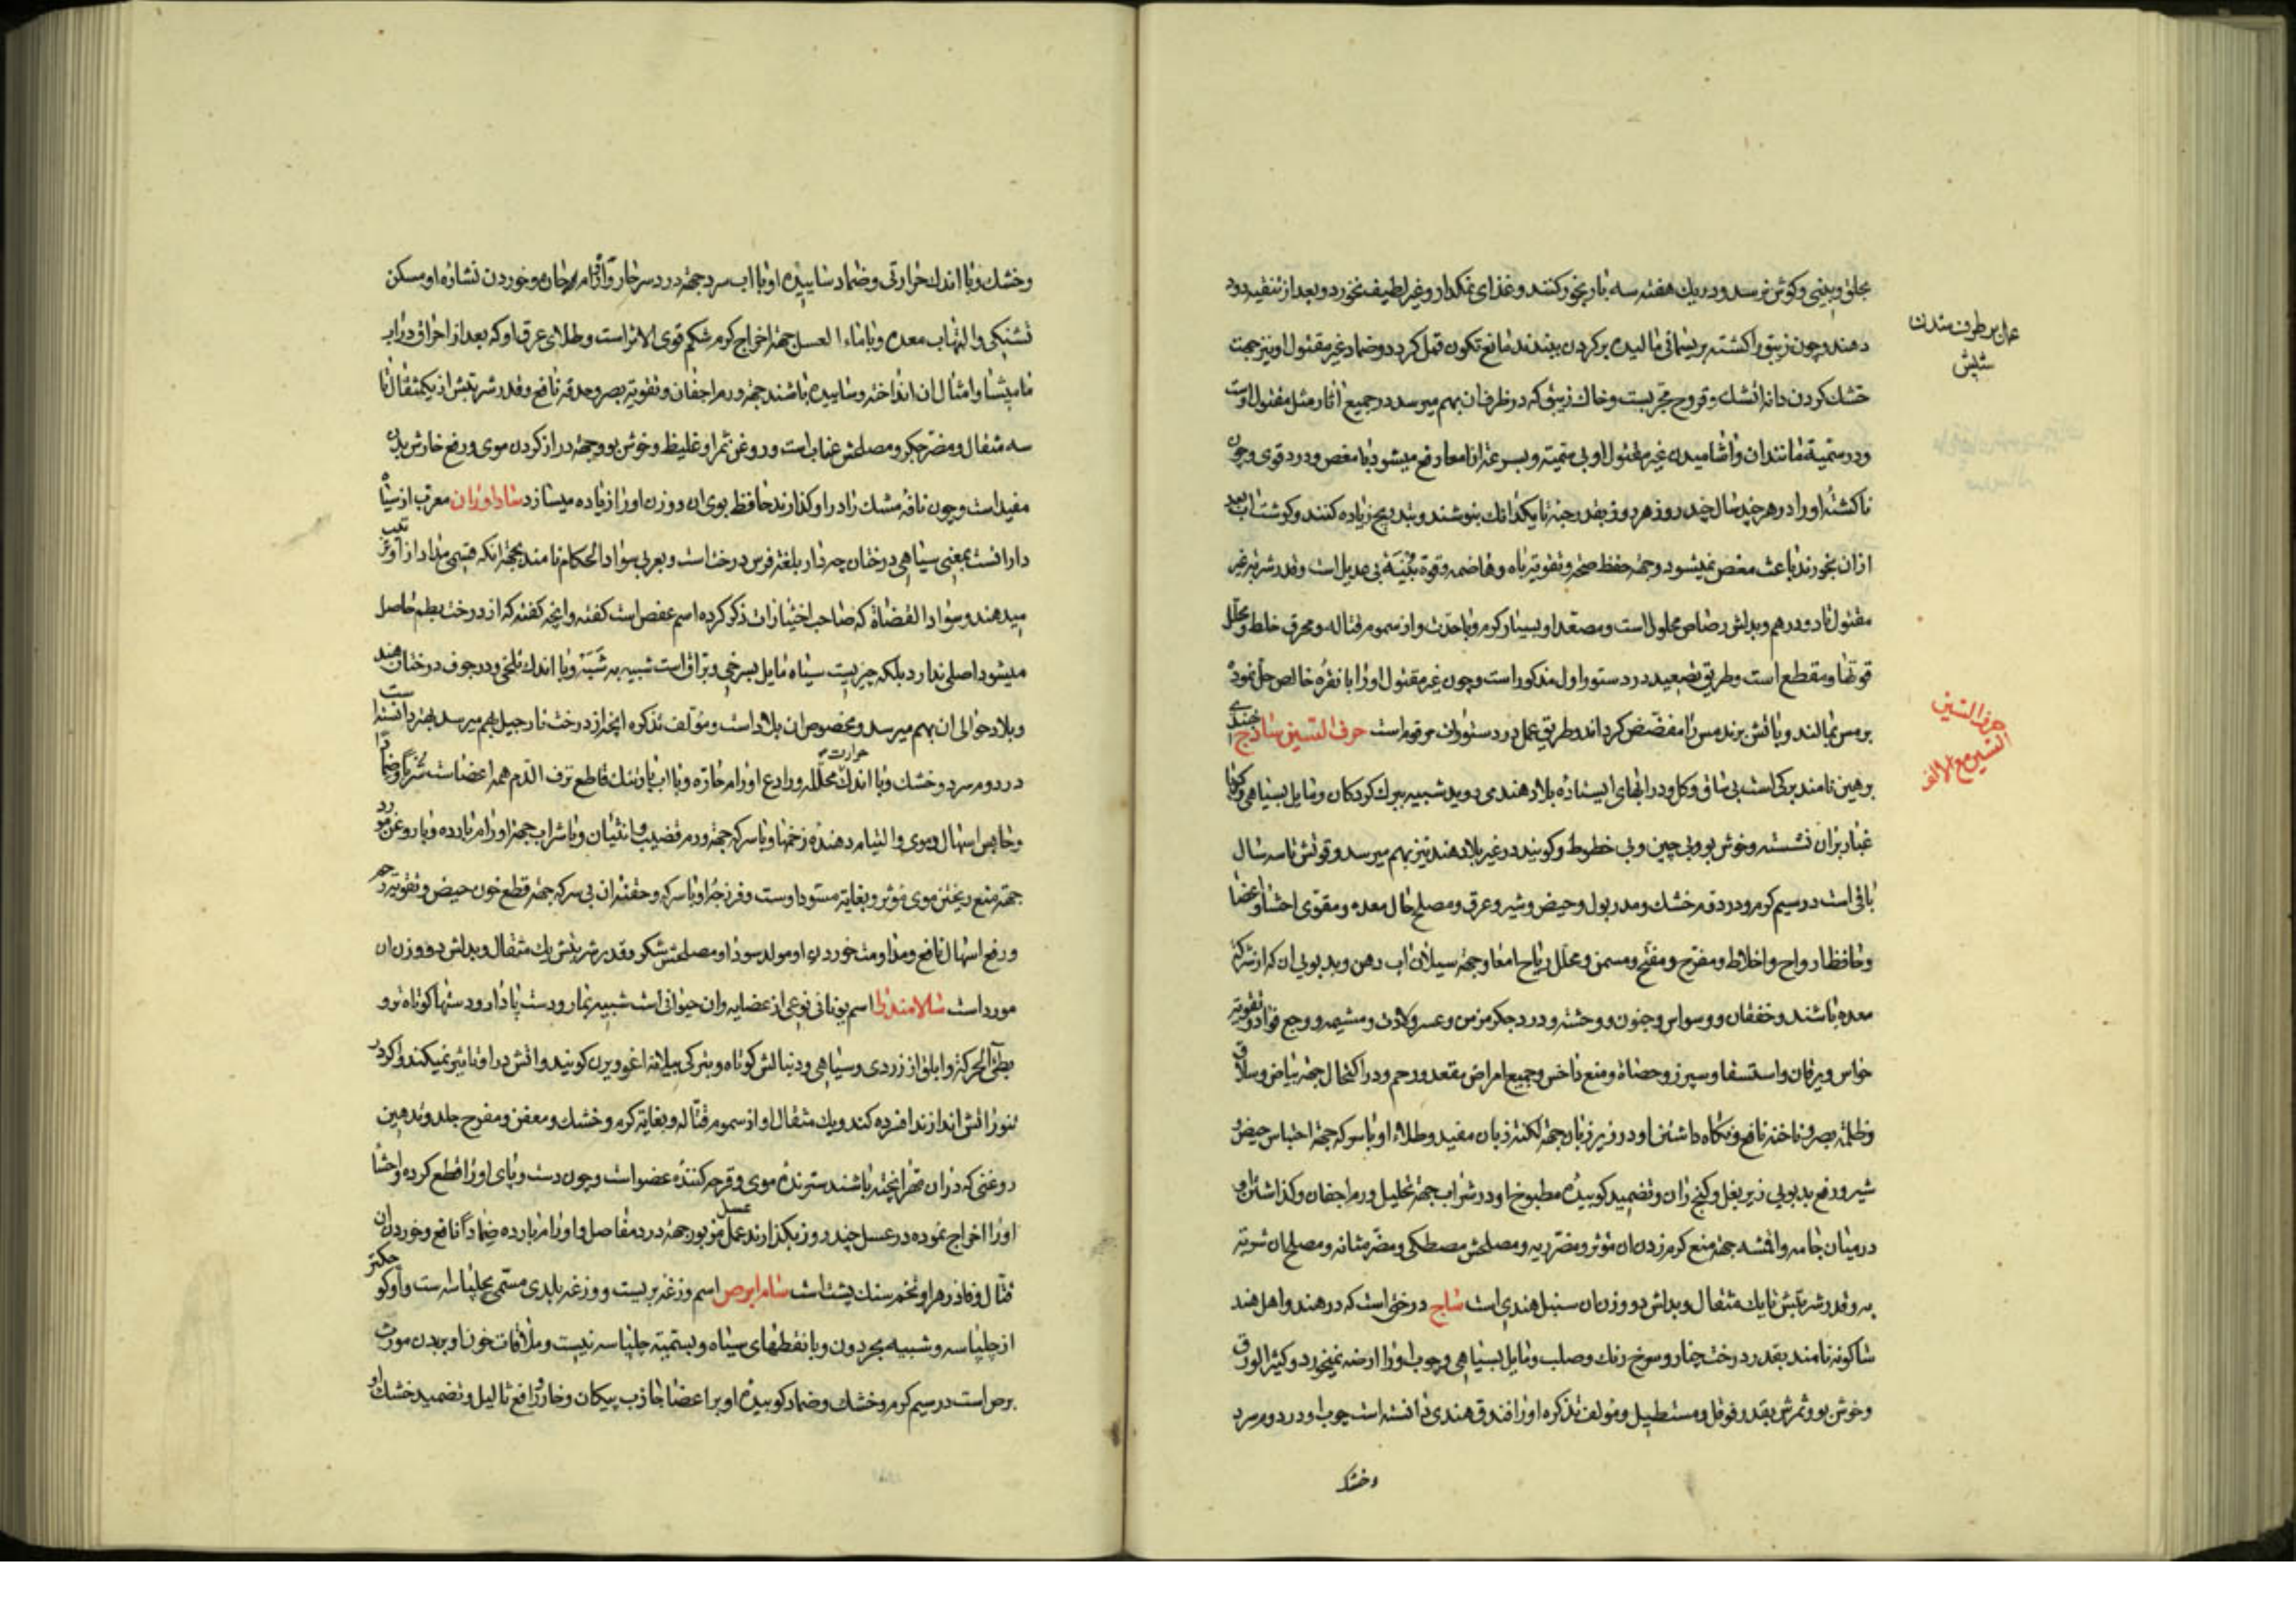 بحلق و بینی و کوش نرسد و در یک هفته سه بار بخور کنند و غذای نمکدار و غیر لطیف نخورد و بعد از تنقیه دود
دهند و چون زیبق را کشته بریسمانی مالیده بر کردن بندند مانع تکون قمل کردد و ضماد غیر مقتول او نیز جهت
خشک کردن دانه اتشک و قروح مجربست و خاک زیبق که در ظرف ان بهم میرسد در جمیع اثار مثل مقتول اوست
و در سمیة مانند ان و اشامیدن غیر مقتول او بی سمیته و بسرعة از امعا رفع میشود با مغص و درد قوی و چون
ناکشتهٔ او را در هر چند سال چند روز هر روز بقدر حبه تا یکدانک بنوشند و بتدریج زیاده کنند و کوشتاب بعد
ازان بخورند باعث مغص نمیشود و جهة حفظ صحة و تقویة باه و هاضمه و قوة بنیه بی عدیل است و قدر شربة غیر
مقتول تا دو درهم و بدلش رصاص محلول است و مصعد او بسیار کرم و با حدت و از سموم قتاله و محرق خلط و محلل
قوتها و مقطع است و طریق تصعید در دستور اول مذکور است و چون غیر مقتول او را با نقرهٔ خالص حل نموده
بر مس بمالند و باتش برند مس را مفضض کرداند و طریق عمل در دستورات مرقوم است حرف السین ساذج هندی
برهین نامند برکی است بی ساق و کل و در ابهای ایستاده بلاد هند می روید شبیه ببرک کردکان و مایل بسیاهی و کویا
غبار بران نشسته و خوش بو و بی چین و بی خطوط و کویند در غیر بلاد هند نیز بهم میرسد و قوتش تا سه سال
باقی است در سیم کرم و در دوم خشک و مدر بول و حیض و شیر و عرق و مصلح حال معده و مقوی احشا و اعضا
و حافظ ارواح و اخلاط و مفرح و مفتح و مسمن و محلل ریاح امعا و جهة سیلان اب دهن و بدبویی ان که از شرکة
معده باشند و خفقان و وسواس و جنون و وحشة و درد جکر مزمن و عسر ولادت و مشیمه و وجع فواد و تقویة
حواس و یرقان و استسقا و سپرز و حصاة و منع داخس و جمیع امراض مقعد و رحم و در اکتحال جهة بیاض و سلاق
و ظلمة بصر و ناخنه نافع و نکاه داشتن او در زیر زبان جهة لکنة زبان مفید و طلاء او با سرکه جهة احتباس حیض و
شیر و رفع بدبویی زیر بغل و کنج ران و تضمید کوبیدهٔ مطبوخ او در شراب جهة تحلیل ورم اجفان و کذاشتن او
در میان جامه و اقمشه جهة منع کرم زدن ان موثر و مضر ریه و مصلحش مصطکی و مضر مثانه و مصلح ان شربة
به و قدر شربتش تا یک مثقال و بدلش دو وزن ان سنبل هندی است ساج درختی است که در هند و اهل هند
شاکونه نامند بقدر درخت چنار و سرخ رنک و صلب و مایل بسیاهی و چوب او را ارضه نمیخورد و کثیر الورق
و خوش بو و ثمرش بقدر فوفل و مستطیل و مولف تذکره او را فندق هندی دانسته است چوب او در دوم سرد
و خشک
عمل برطرف شدن
شپش
حرف السین
السین مع الالف
و خشک و با اندک حرارتی و ضماد ساییدهٔ او با اب سرد جهة درد سر حار و اورام حاره و خوردن نشارهٔ او مسکن
تشنکی و التهاب معده و با ماء العسل جهة اخراج کرم شکم قوی الاثر است و طلای عرق او که بعد از احراق دراب
مامیثا و امثال ان انداخته و ساییده باشند جهة ورم اجفان و تقویة بصر و حدقه نافع و قدر شربتش از یکمثقال تا
سه مثقال و مضر جکر و مصلحش عناب است و روغن ثمر او غلیظ و خوش بو و جهة دراز کردن موی و رفع خارش بدن
مفید است و چون نافهٔ مشک را در او کذارند حافظ بوی ان و وزن او را زیاده میسازد ساداوران معرب از سیاه
دارانست بمعنی سیاهی درختان چه دار بلغة فرس درخت است و بعربی سواد الحکام نامند بجهة انکه قسمی مداد از او ترتیب
میدهند و سواد القضاة که صاحب اختیارات ذکر کرده اسم عفص است کفته و انچه کفته که از درخت بطم حاصل
میشود اصلی ندارد بلکه چیزیست سیاه مایل بسرخی و براق است شبیه به شبه و با اندک تلخی و در جوف درختان هند
و بلاد حوالی ان بهم میرسد و مخصوص ان بلاد است و مولف تذکره انچه از درخت نارجیل بهم میرسد بهتر دانسته است
در دوم سرد و خشک و با اندک حرارت محلله و رادع اورام حاره و با اب بارتنک قاطع نزف الدم همه اعضاست شربا و ضمادا
و حابس اسهال دموی و التیام دهندهٔ زخمها و با سرکه جهة ورم قضیب و انثیان و با شراب جهة اورام بارده و با روغن مورد
جهة منع ریختن موی موثر و بغایة مسود اوست و فرزجهٔ او با سرکه و حقنه ان بی سرکه جهة قطع خون حیض و تقویة رحم
و رفع اسهال نافع و مداومت خوردن او مولد سودا و مصلحش شکر و قدر شربتش یک مثقال و بدلش دو وزن ان
مورد است سالامندرا اسم یونانی نوعی از عضایه و ان حیوانی است شبیه بمار و دست پا دار و دستها کوتاه تر و
بطئ الحرکة و ابلق از زردی و سیاهی و دنبالش کوتاه و بترکی ییلان اغوویرن کویند و اتش در او تاثیر نمیکند و اکر در
تنور اتش اندازند افسرده کند و یک مثقال او از سموم قتاله و بغایة کرم و خشک و معفن و مقرح جلد و تدهین
روغنی که در ان مهرا پخته باشند سترندهٔ موی و قرحه کنندهٔ عضو است و چون دست و پای او را قطع کرده و احشا
او را اخراج نموده در عسل چند روز بکذارند عسل مزبور جهة درد مفاصل و اورام بارده ضمادا نافع و خوردن ان
قتال و فادزهر او تخم سنک پشت است سام ابرص اسم وزغه بریست و وزغه بلدی مسمی بچلپاسه است و او کوچکتر
از چلپاسه و شبیه بحردون و با نقطهای سیاه و بسمیة چلپاسه نیست و ملاقات خون او ببدن مورث
برص است در سیم کرم و خشک و ضماد کوبیدهٔ او بر اعضا جاذب پیکان و خار و رافع ثالیل و تضمید خشک او